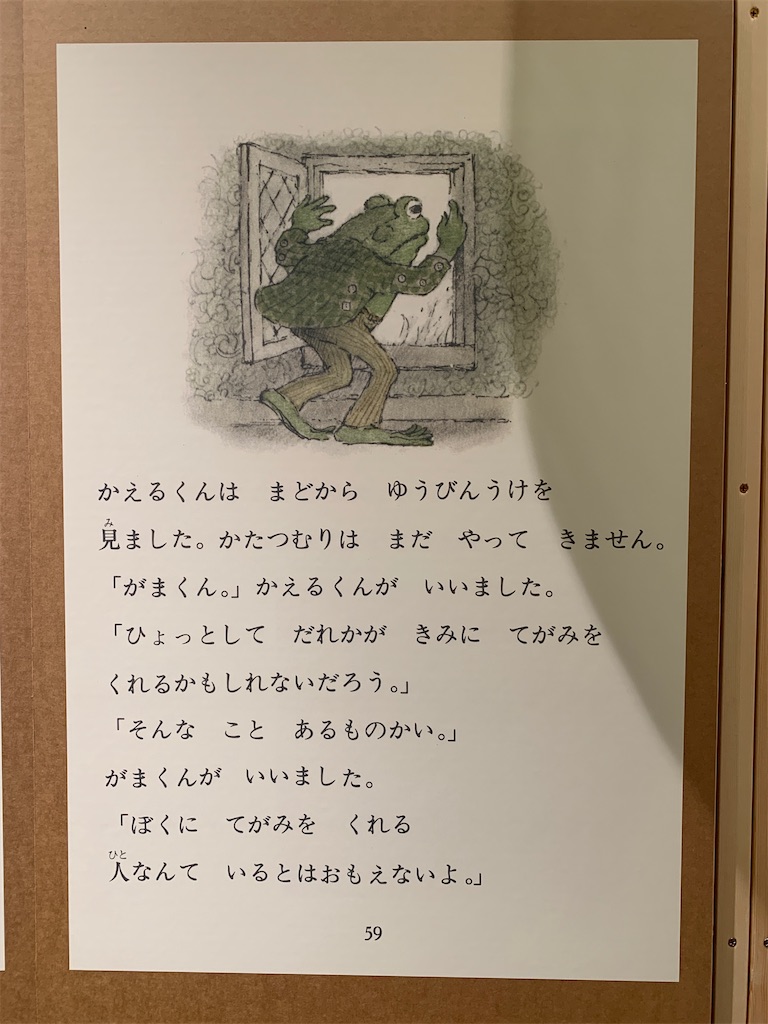 かえるくんは　まどから　ゆうびんうけを
見ました。かたつむりは　まだ　やって　きません。
「がまくん。」かえるくんが　いいました。
「ひょっとして　だれかが　きみに　てがみを
くれるかもしれないだろう。」
「そんな　こと　あるものかい。」
がまくんが　いいました。
「ぼくに　てがみを　くれる
人なんて　いるとはおもえないよ。」
59